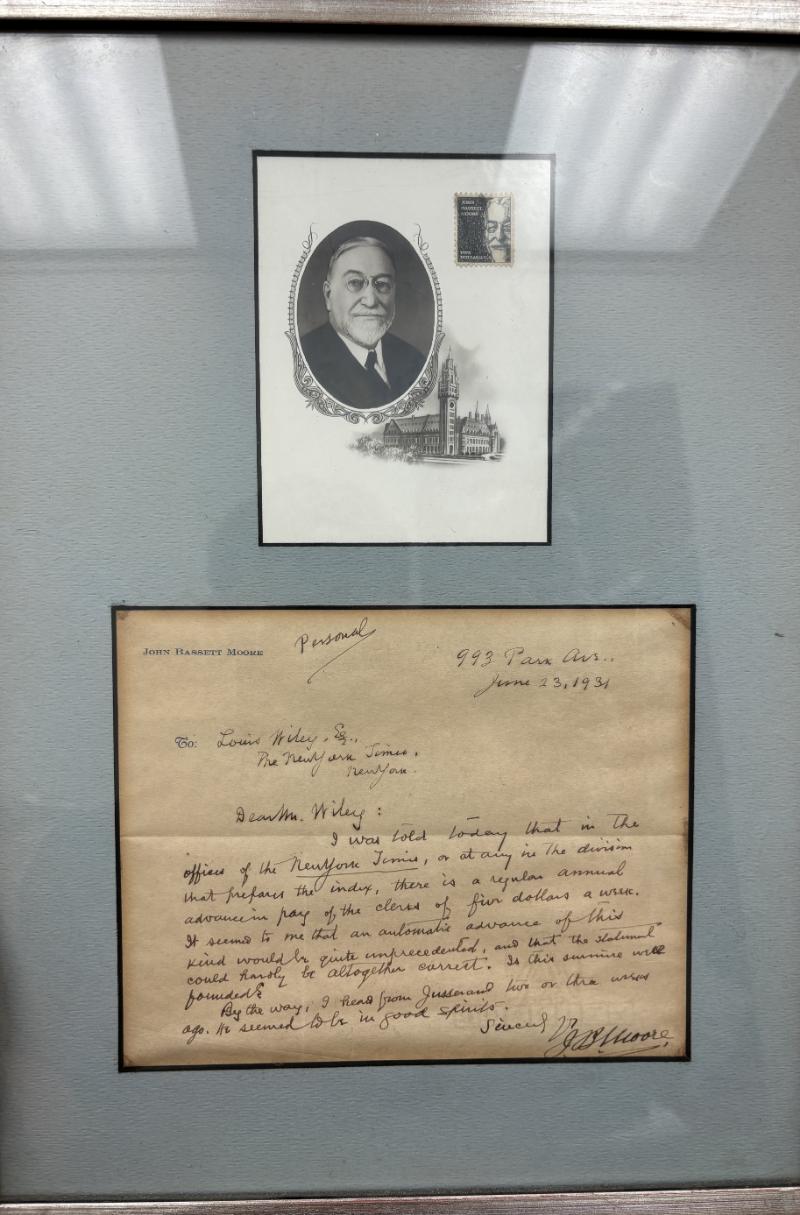 JOHN
BASSETT
MOORE
John Bassett Moore
Personal
993 Park Ave.,
June 23, 1931
To: Louis Wiley, Esq.,
The New York Times,
New York.
Dear Mr. Wiley:
I was told today that in the
offices of the New York Times, or at any in the division
that prepares the index, there is a regular annual
advance in pay of the clerks of five dollars a week.
It seemed to me that an automatic advance of this
kind would be quite unprecedented, and that the statement
could hardly be altogether correct. Is this surmise well
founded?
By the way, I heard from Jusserand two or three weeks
ago. He seemed to be in good spirits.
Sincerely
J. B. Moore